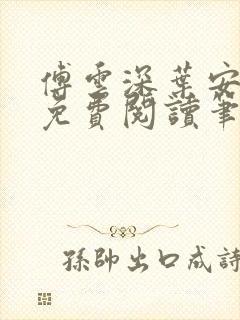 傅雲深葉安
免費閱讀筆
孫帥出口成詩